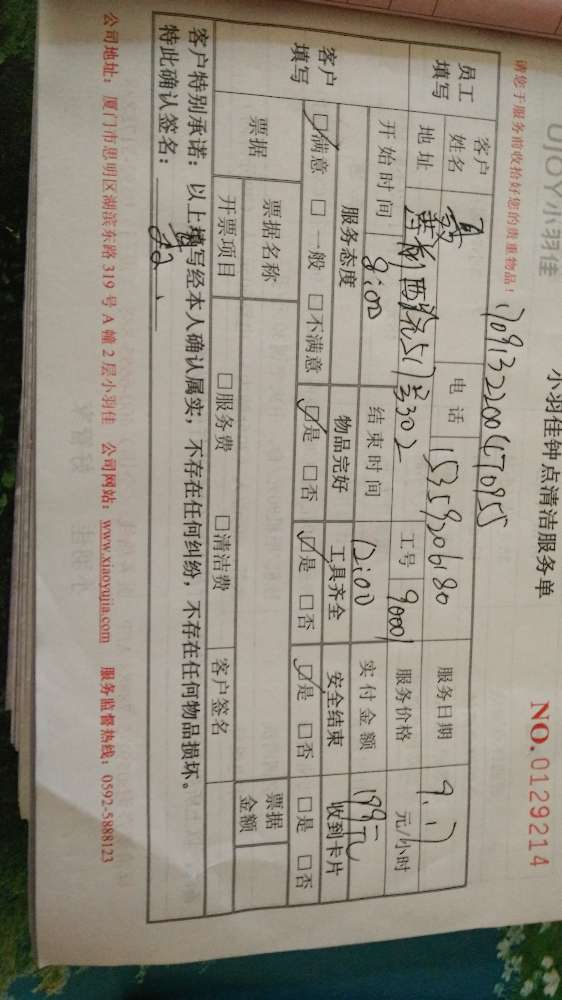 UJOY小羽佳
小羽佳钟点清洁服务单
NO.0129214
请您于服务前收拾好您的贵重物品！
员工填写
客户姓名
电话 15359206180
服务日期 9.17
地址
西院517号302
工号 90001
服务价格 元/小时
开始时间 8:00
结束时间 12:00
实付金额 199元
客户填写
服务态度 物品完好 工具齐全 安全结束 收到卡片
☑满意 □一般 □不满意 ☑是 □否 ☑是 □否 ☑是 □否 □是 □否
票据 票据名称 客户签名 票据金额
开票项目 □服务费 □清洁费
客户特别承诺：以上填写经本人确认属实，不存在任何纠纷，不存在任何物品损坏。
特此确认签名：
公司地址：厦门市思明区湖滨东路319号A幢2层小羽佳 公司网站：www.xiaoyujia.com 服务监督热线：0592-5888123